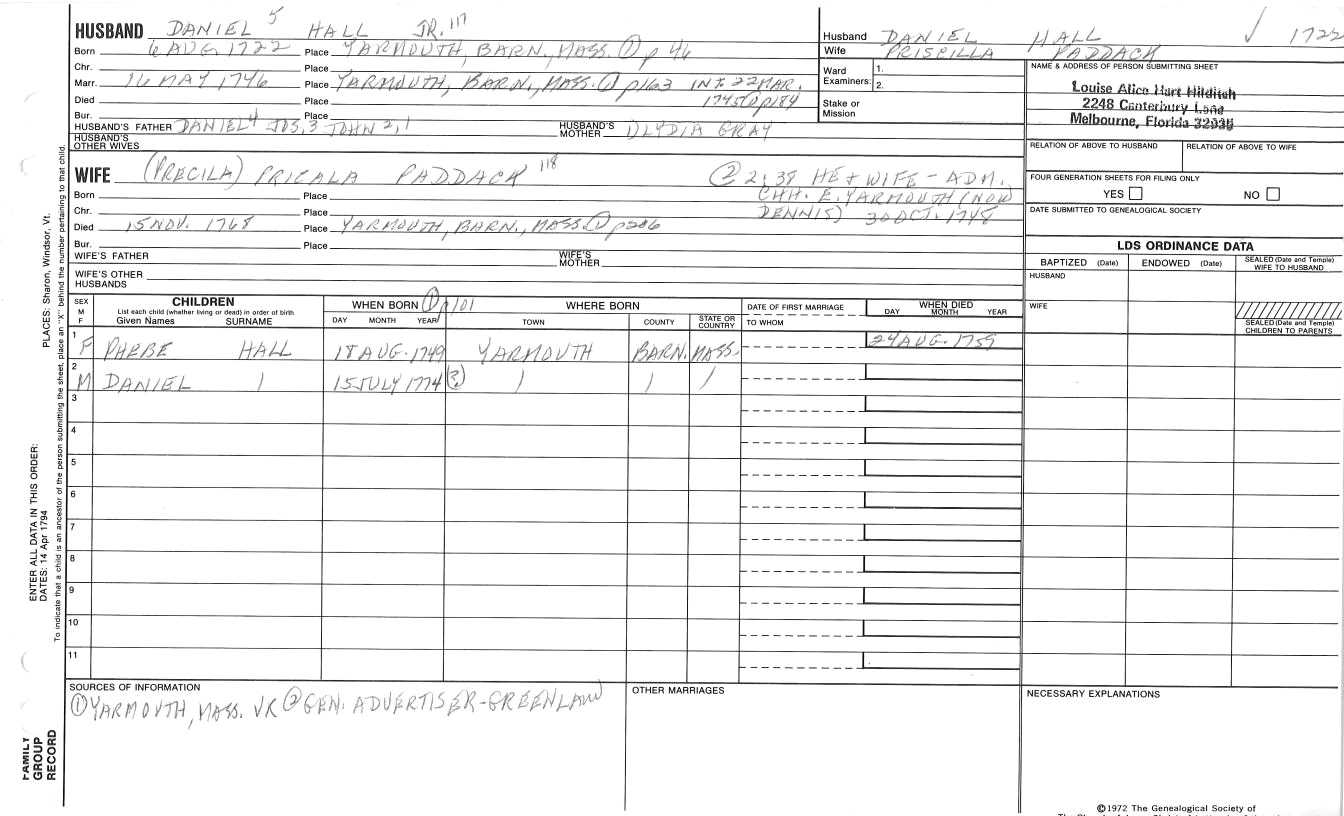 HUSBAND DANIEL 5 HALL JR. 117
Born 6 AUG 1722 Place YARMOUTH, BARN., MASS. ① p 46
Chr. Place
Marr. 16 MAY 1746 Place YARMOUTH, BARN., MASS. ① p163 INT. 22 MAR.
Died Place 1745 ① p184
Bur. Place
HUSBAND'S FATHER DANIEL 4 JOS. 3 JOHN 2, 1 HUSBAND'S MOTHER LYDIA GRAY
HUSBAND'S OTHER WIVES
WIFE (PRECILA) PRICALA PADDACK 118 ② 2:38 HE + WIFE - ADM.
Born Place CHH. E. YARMOUTH (NOW
Chr. Place DENNIS) 30 OCT. 1748
Died 15 NOV. 1768 Place YARMOUTH, BARN., MASS. ① p286
Bur. Place
WIFE'S FATHER WIFE'S MOTHER
WIFE'S OTHER HUSBANDS
Husband DANIEL HALL ✓ 1722
Wife PRISCILLA PADDACK
Ward Examiners: 1.
2.
Stake or Mission
NAME & ADDRESS OF PERSON SUBMITTING SHEET
Louise Alice Hart Hilditch
2248 Canterbury Lane
Melbourne, Florida 32935
RELATION OF ABOVE TO HUSBAND RELATION OF ABOVE TO WIFE
FOUR GENERATION SHEETS FOR FILING ONLY
YES NO
DATE SUBMITTED TO GENEALOGICAL SOCIETY
LDS ORDINANCE DATA
BAPTIZED (Date) ENDOWED (Date) SEALED (Date and Temple) WIFE TO HUSBAND
HUSBAND
WIFE
SEALED (Date and Temple) CHILDREN TO PARENTS
SEX M F
CHILDREN
List each child (whether living or dead) in order of birth
Given Names SURNAME
WHEN BORN ① p101
DAY MONTH YEAR
WHERE BORN
TOWN COUNTY STATE OR COUNTRY
DATE OF FIRST MARRIAGE
TO WHOM
WHEN DIED
DAY MONTH YEAR
1 F PHEBE HALL 18 AUG. 1749 YARMOUTH BARN. MASS. 24 AUG. 1759
2 M DANIEL / 15 JULY 1774 (?) / / /
3
4
5
6
7
8
9
10
11
SOURCES OF INFORMATION
① YARMOUTH, MASS. VR ② GEN. ADVERTISER-GREENLAW
OTHER MARRIAGES
NECESSARY EXPLANATIONS
©1972 The Genealogical Society of
PLACES: Sharon, Windsor, Vt.
ENTER ALL DATA IN THIS ORDER:
DATES: 14 Apr 1794
To indicate that a child is an ancestor of the person submitting the sheet, place an "X" behind the number pertaining to that child.
FAMILY GROUP RECORD